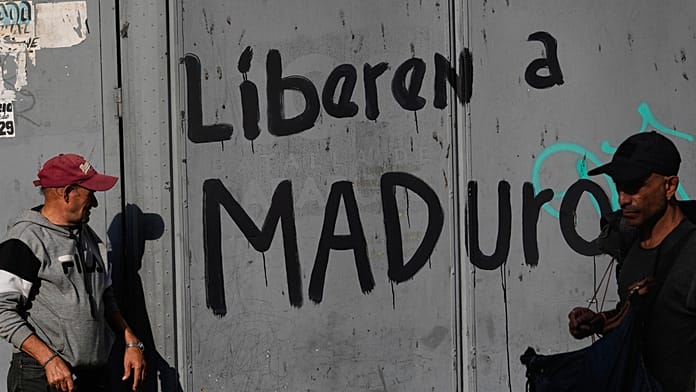 29
Liberen a
MADuro
FILA